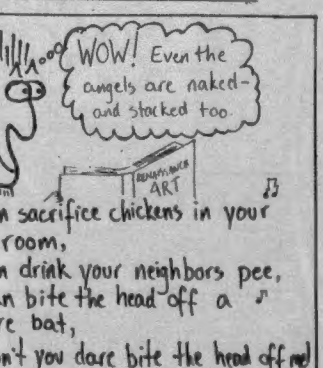 WOW! Even the
angels are naked-
and stacked too.
RENAISSANCE
ART
n sacrifice chickens in your
room,
n drink your neighbors pee,
n bite the head off a
re bat,
n't you dare bite the head off me!